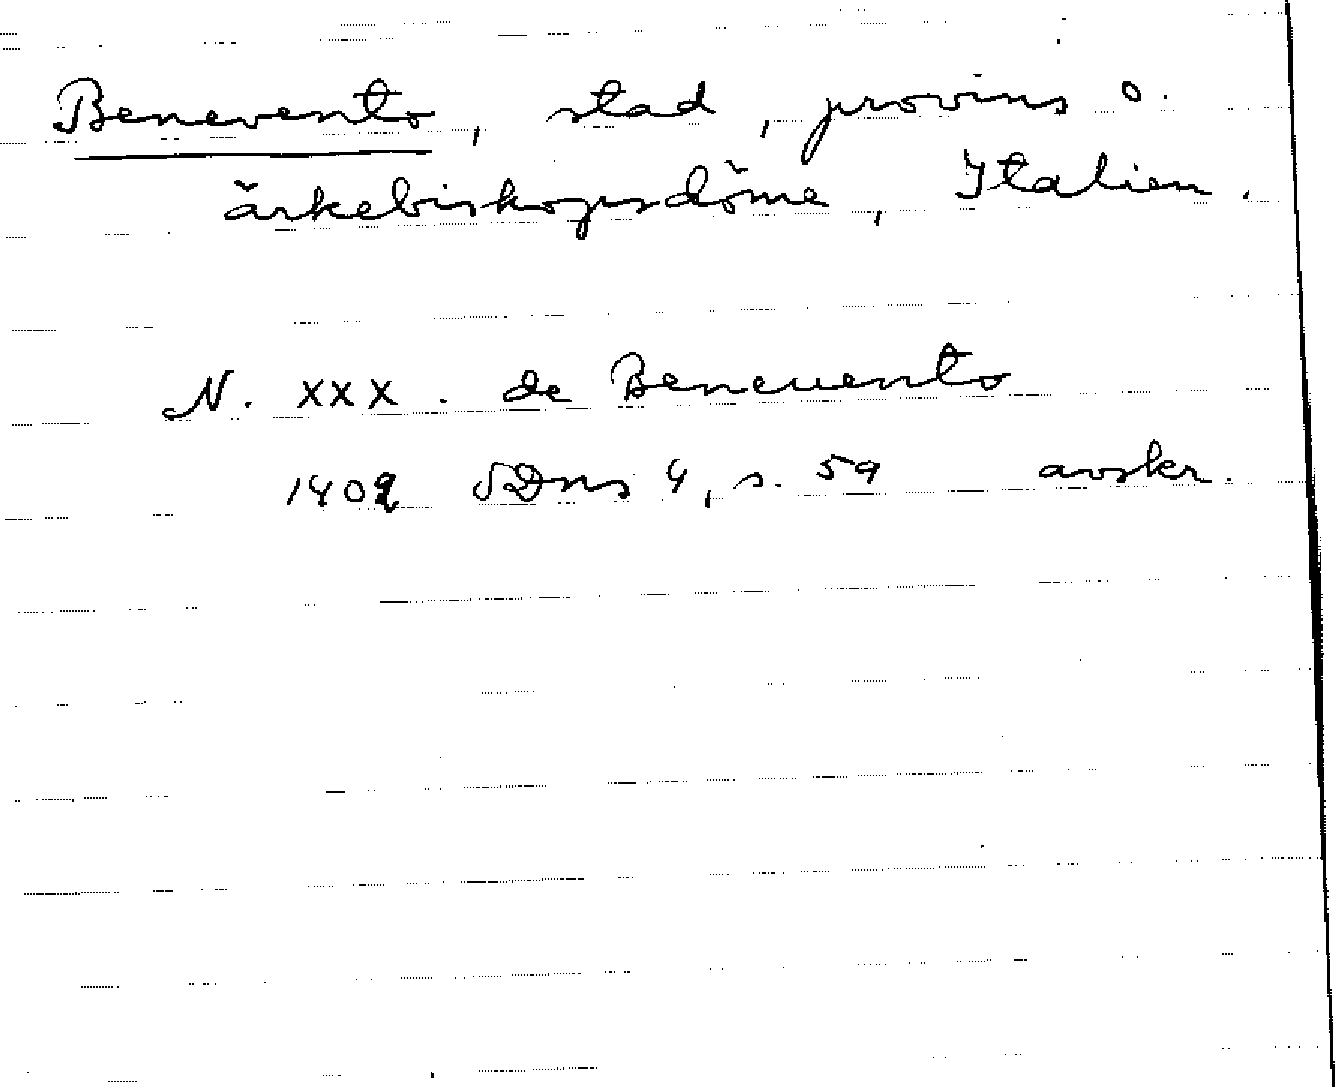 Benevento, stad, provins o.
ärkebiskopsdöme, Italien.
N. xxx. de Beneuento
1409 SDns 4, s. 59 avskr.